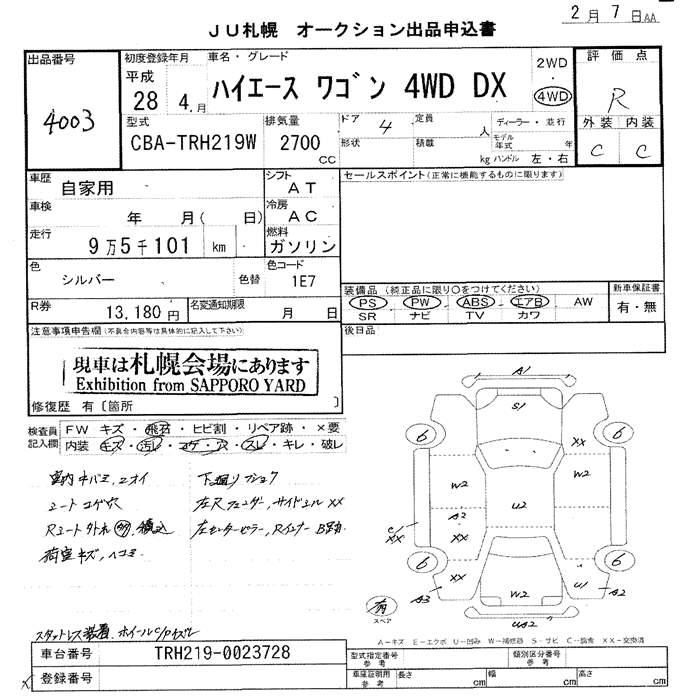 2月 7日AA
JU札幌 オークション出品申込書
出品番号
4003
初度登録年月
平成
28 4.月
車名・グレード
ハイエース ワゴン 4WD DX
2WD
・
4WD
評価点
R
型式
CBA-TRH219W
排気量
2700
cc
ドア 4
定員 人
ディーラー・並行
形状
積載 kg
モデル年式 年
ハンドル 左・右
外装 内装
C C
車歴
自家用
シフト
AT
セールスポイント(正常に機能するものに限ります)
車検
年 月( 日)
冷房
AC
走行
9万5千101 km
燃料
ガソリン
色
シルバー
色替
色コード
1E7
装備品(純正品に限り○をつけてください)
新車保証書
PS PW ABS エアB AW
有・無
SR ナビ TV カワ
R券
13,180円
名変通知期限
月 日
注意事項申告欄(不具合内容等は具体的に記入して下さい)
後日品
現車は札幌会場にあります
Exhibition from SAPPORO YARD
修復歴 有〔箇所 〕
検査員
記入欄
FW キズ・飛石・ヒビ割・リペア跡・×要
内装 キズ・汚レ・コゲ・穴・スレ・キレ・破レ
シートコゲ穴
荷室キズ、ヘコミ
A1
S1
6
6
XX
W2
W2
U2
A2
XX
W2
XX
6
6
A3
W2
U1
A2
UA2
スペア
A-キズ E-エクボ U-凹み W-補修跡 S-サビ C-腐食 XX-交換済
車台番号
TRH219-0023728
型式指定番号
参考
類別区分番号
参考
登録番号
車庫証明用
参考
長さ cm
幅 cm
高さ cm